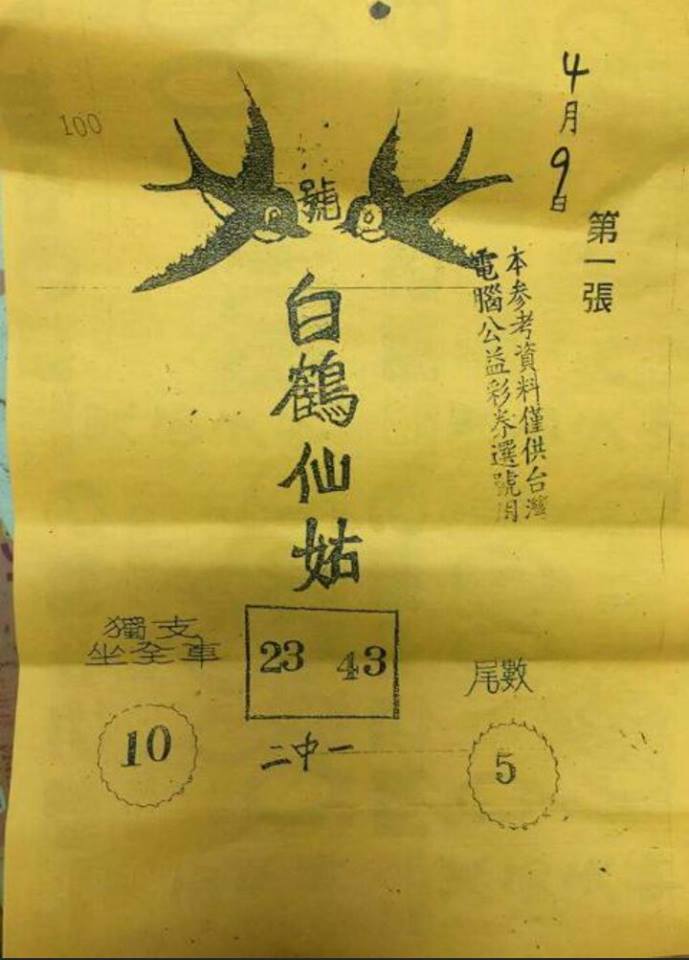 100
4月9日
第一張
號
本参考資料僅供台灣
電腦公益彩券選號用
白鶴仙姑
獨支
坐全車
10
23 43
二中一
尾數
5